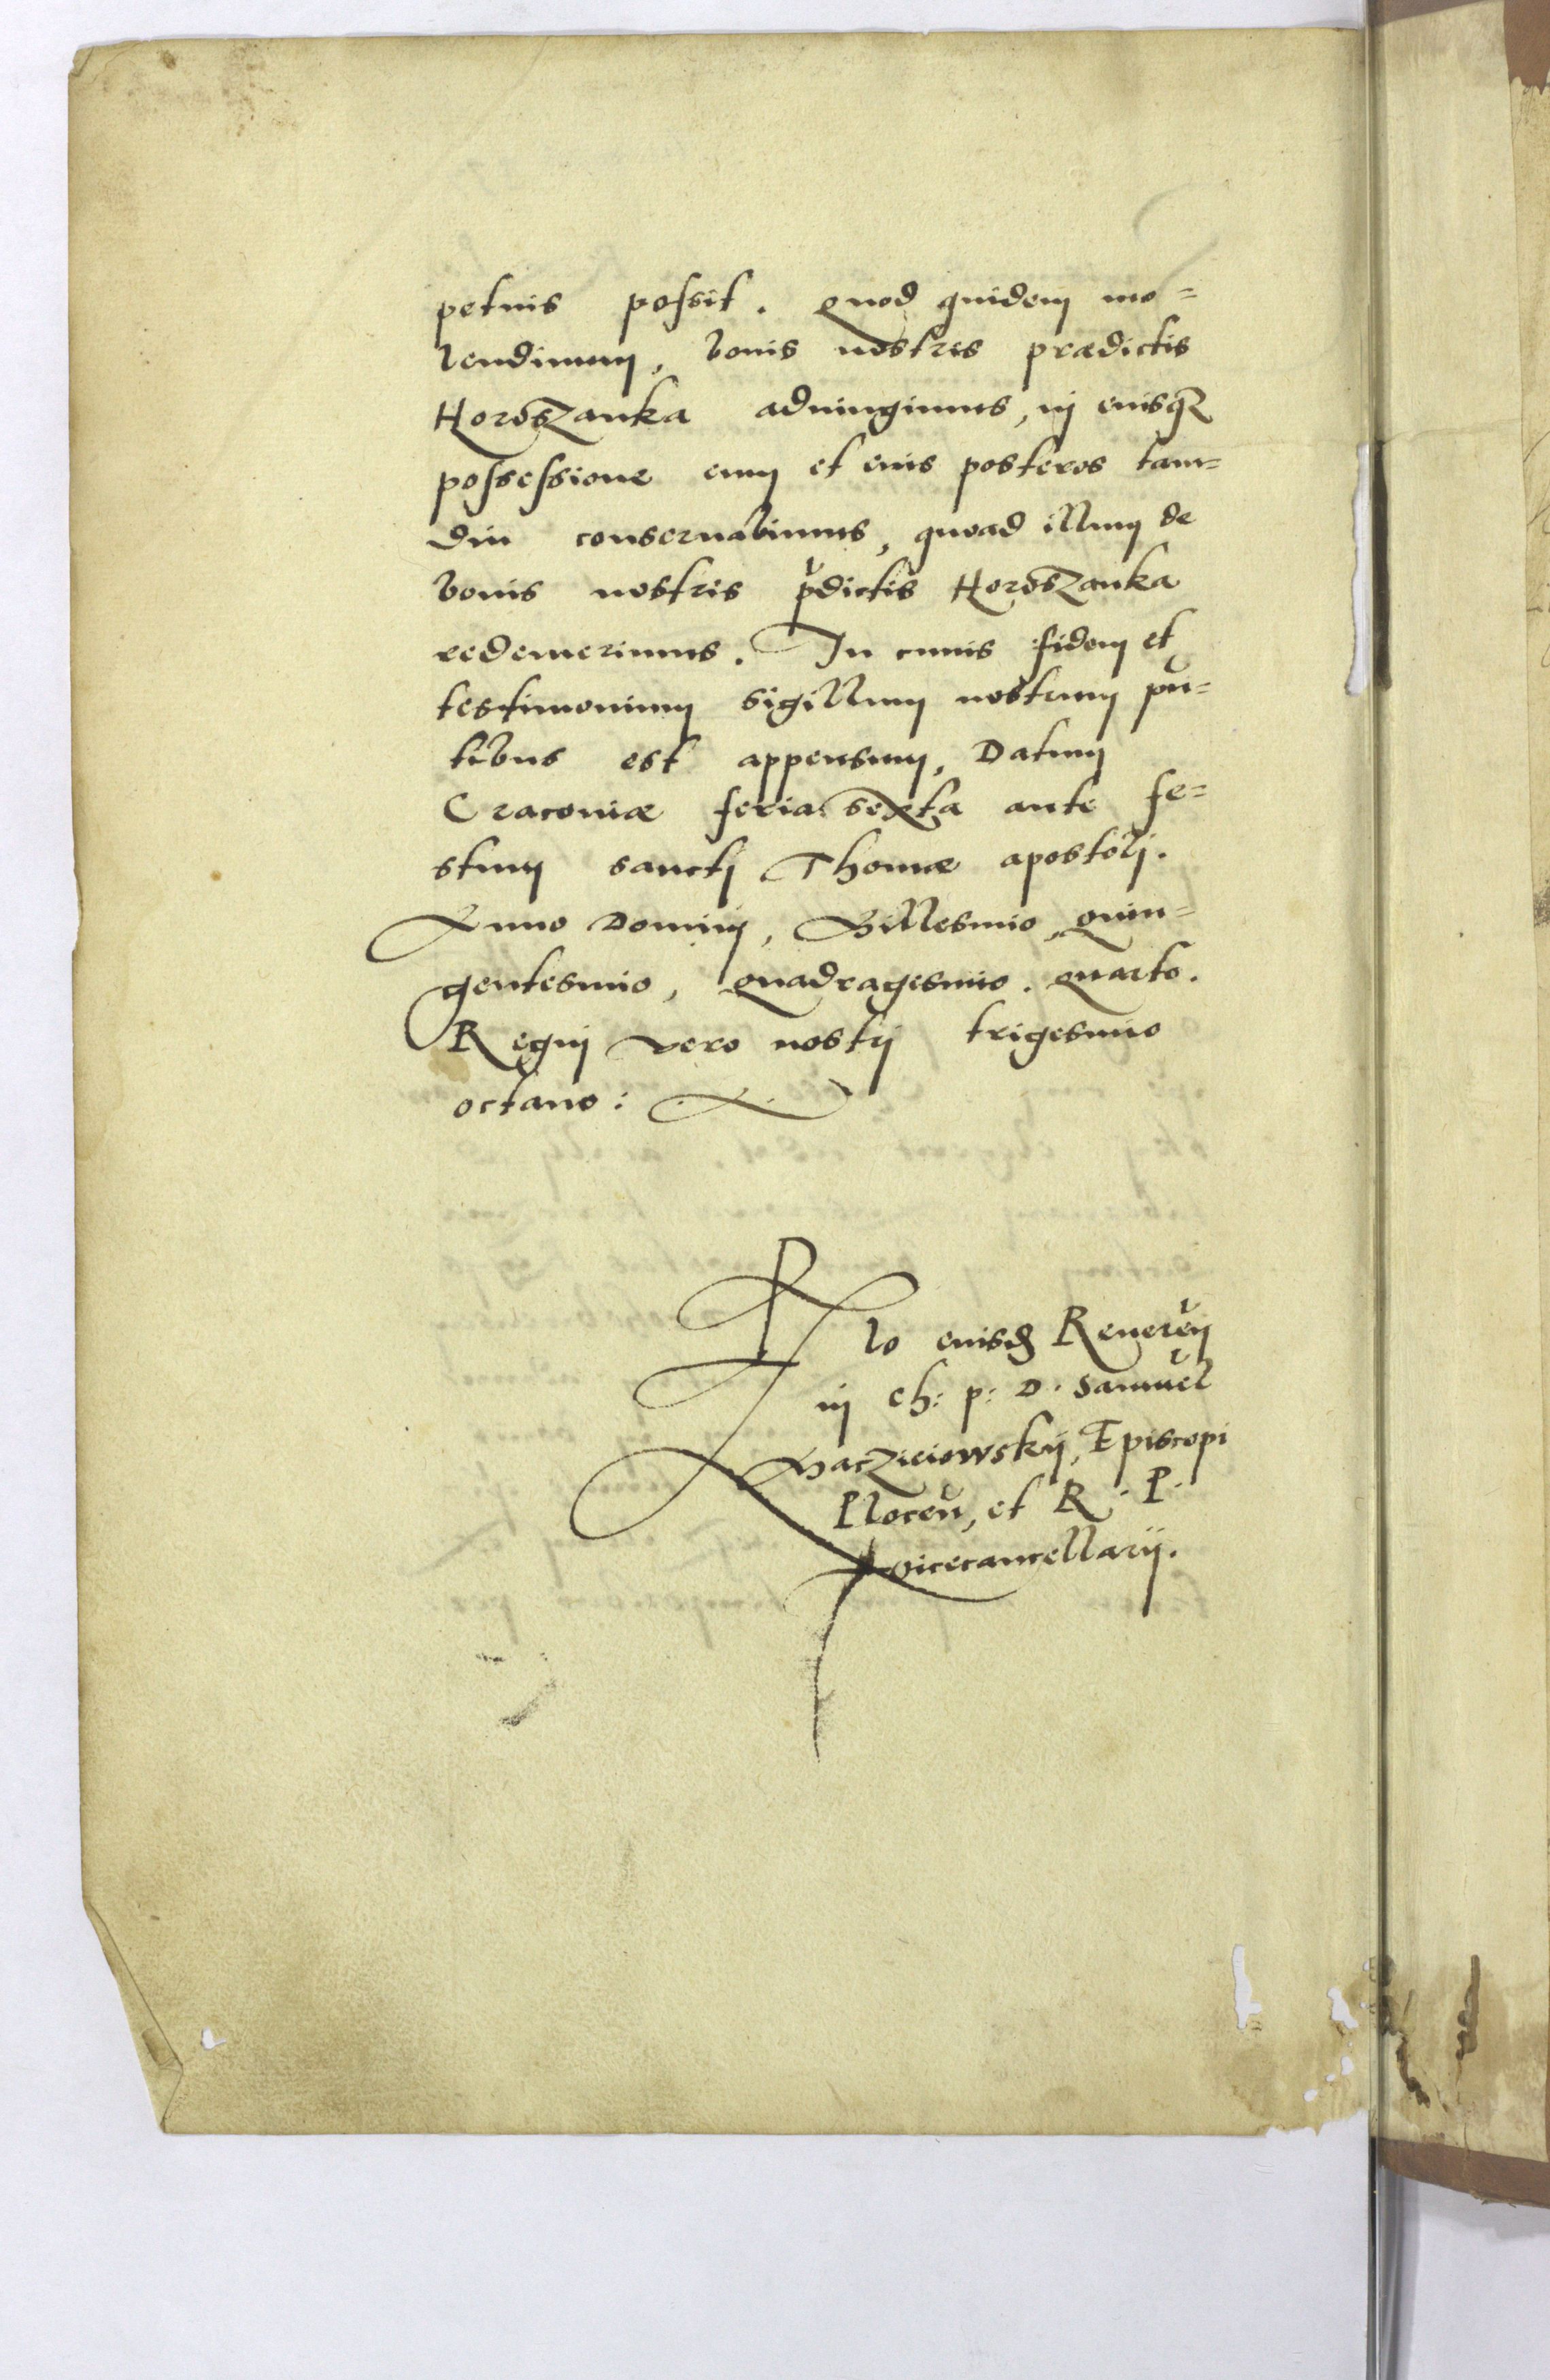 petuis possit. Quod quidem mo=
lendinum, bonis nostris prædictis
Horoszanka adiungimus, in eiusq3
possessione eum et eius posteros tam=
diu conseruabimus, quoad illum de
bonis nostris p̃dictis Horoszanka
redemerimus. In cuius fidem et
testimonium sigillum nostrum pñ=
tibus est appensum, Datum
Cracouiæ feria sexta ante fe=
stum sancti Thomæ apostoli.
Anno Domini, Millesimo, quin=
gentesimo, quadragesimo. quarto.
Regni vero nostri trigesimo
octauo:
Rlo eiusd Reueren̄
in ch: p: D. Samuel̄
Macziciowskij, Episcopi
Plocen̄, et R. P.
vicecancellarij.